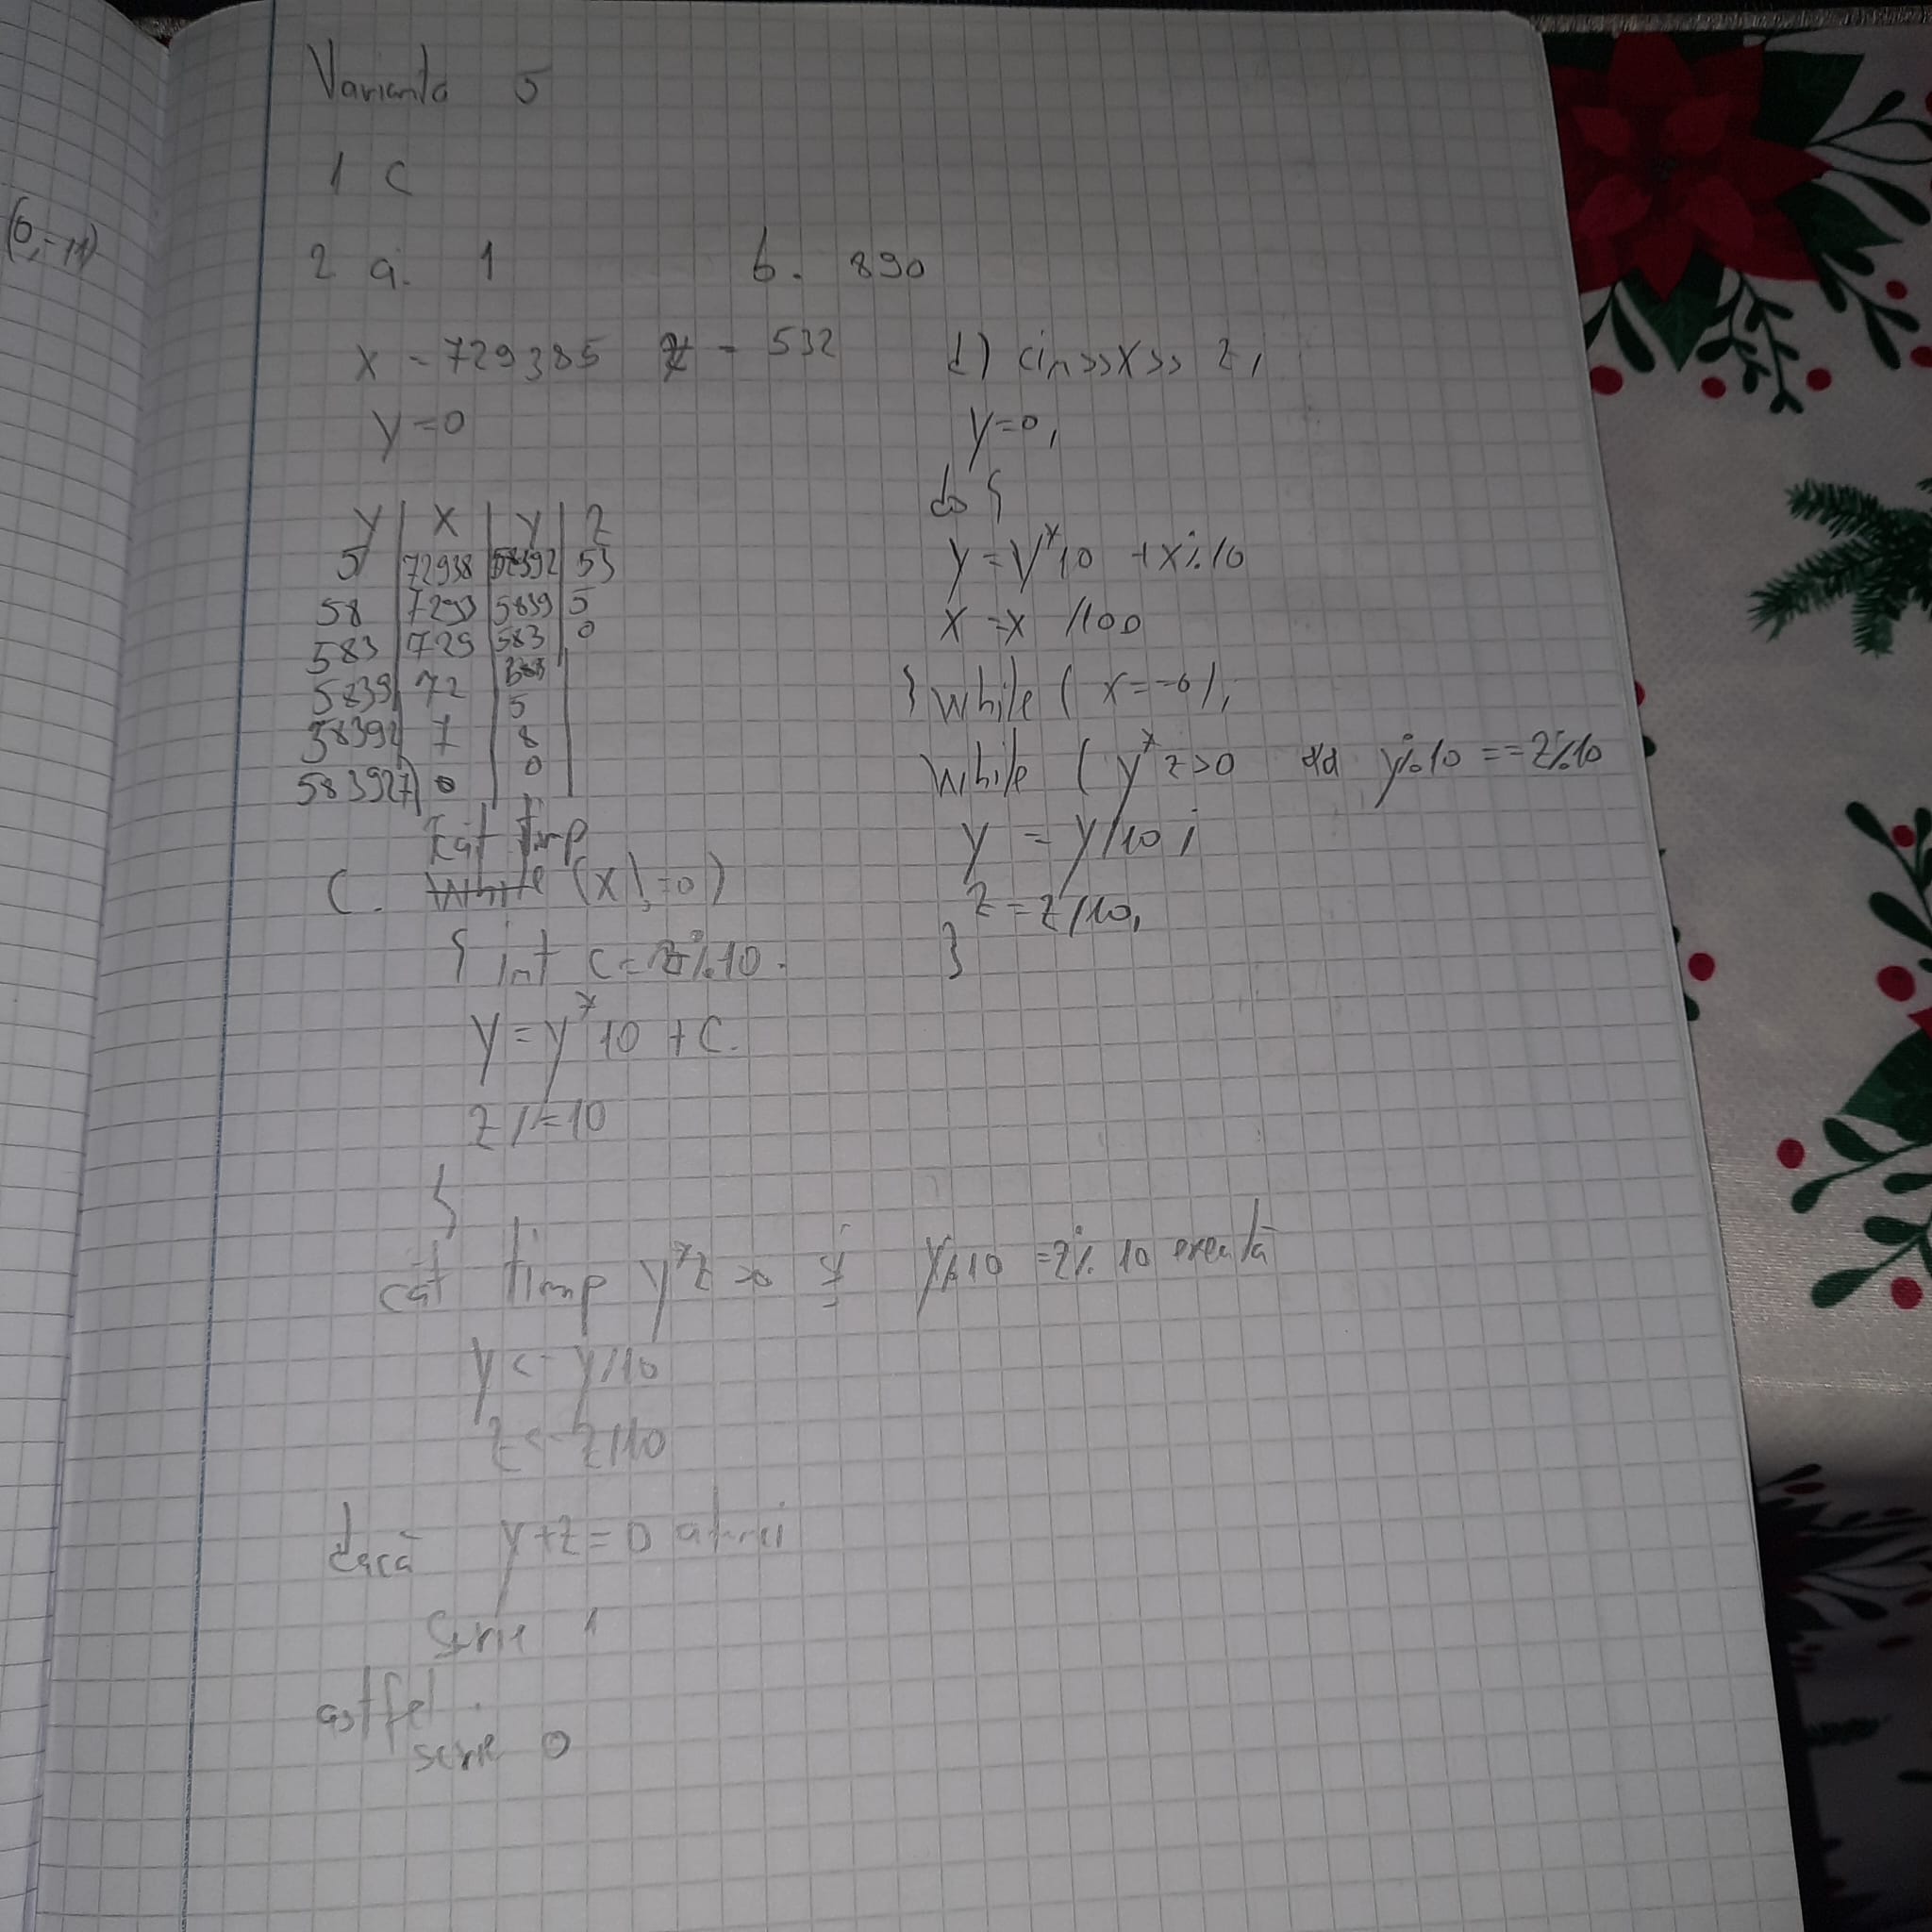 Varianta 5
1 c
(0,-11)
2 a. 1 b. 890
x = 729385 z = 532
y=0
y | x | y | z
5 | 72938 | 58392 | 53
58 | 7293 | 5839 | 5
583 | 729 | 583 | 0
5839 | 72 |
5
58392 | 7 | 8
583927 | 0 | 0
cât timp
c. (x!=0)
{ int c = z%10.
y = y*10 + c.
z /= 10
}
cât timp y*z >0 și y%10 =z%10 execută
y <- y/10
z <- z/10
dacă y+z=0 atunci
scrie 1
astfel.
scrie 0
d) cin>>x>> z;
y=0;
do {
y = y*10 + x%10
x =x /100
} while ( x==0);
while ( y*z>0 && y%10 ==z%10
y = y/10;
z = z/10;
}